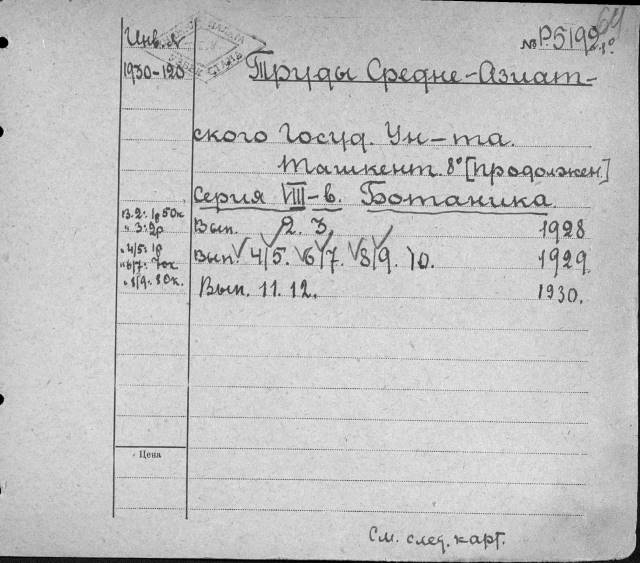 64
Инв. №
№ Р.5192
1930-120
Труды Средне-Азиат-
ского Госуд. Ун-та.
Ташкент. 8° [продолжен.]
Серия VIII-в. Ботаника.
в. 2: 1р 50к
" 3: 2р
" 4/5: 1р
" 6/7: 70к
" 8/9: 80к.
Вып. 2. 3. 1928
Вып. 4/5. 6/7. 8/9. 10. 1929
Вып. 11. 12. 1930.
Цена
См. след. карт.